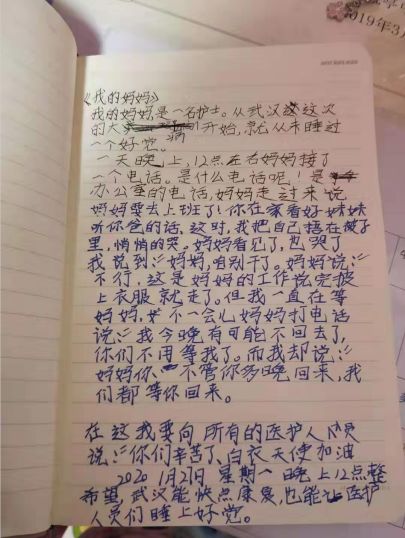 019年3月
《我的妈妈》
我的妈妈,是一名护士。从武汉这次
的大病开始,就从未睡过
一个好觉。
一天晚上,12点左右妈妈接了
一个电话。是什么电话呢!是
办公室的电话,妈妈走过来说
妈妈要去上班了!你在家看好妹妹
听你爸的话,这时,我把自己捂在被子
里,悄悄的哭。妈妈看见了,也哭了
我说到:"妈妈,咱别干了。妈妈说:"
不行,这是妈妈的工作说完披
上衣服就走了。但我一直在等
妈妈,不一会儿妈妈打电话
说:"我今晚有可能不回去了,
你们不用等我了。而我却说:"
妈妈你、不管你多晚回来,我
们都等你回来。
在这我要向所有的医护人员
说:"你们辛苦了、白衣天使加油
2020 1月21日 星期一 晚上12点整
希望,武汉能快点康复,也能让医护
人员们睡上好觉。